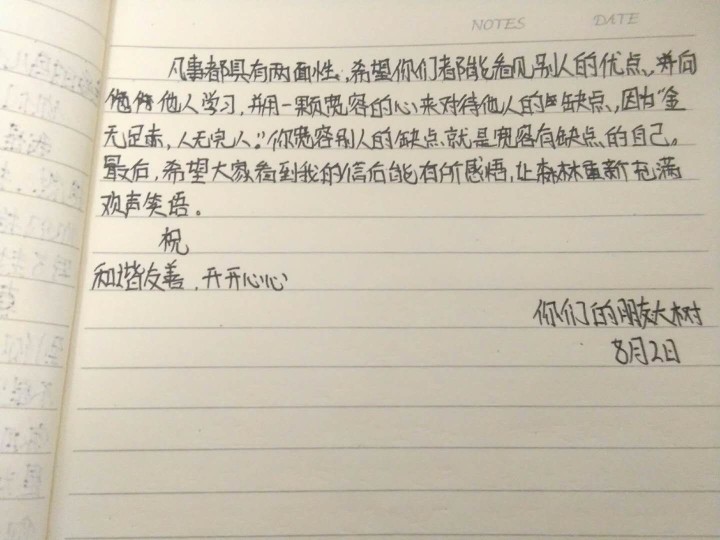 NOTES DATE
凡事都具有两面性，希望你们都能看见别人的优点，并向
他人学习，并用一颗宽容的心来对待他人的缺点，因为“金
无足赤，人无完人。”你宽容别人的缺点就是宽容有缺点的自己。
最后，希望大家看到我的信后能有所感悟，让森林重新充满
欢声笑语。
祝
和谐友善，开开心心
你们的朋友大树
8月2日